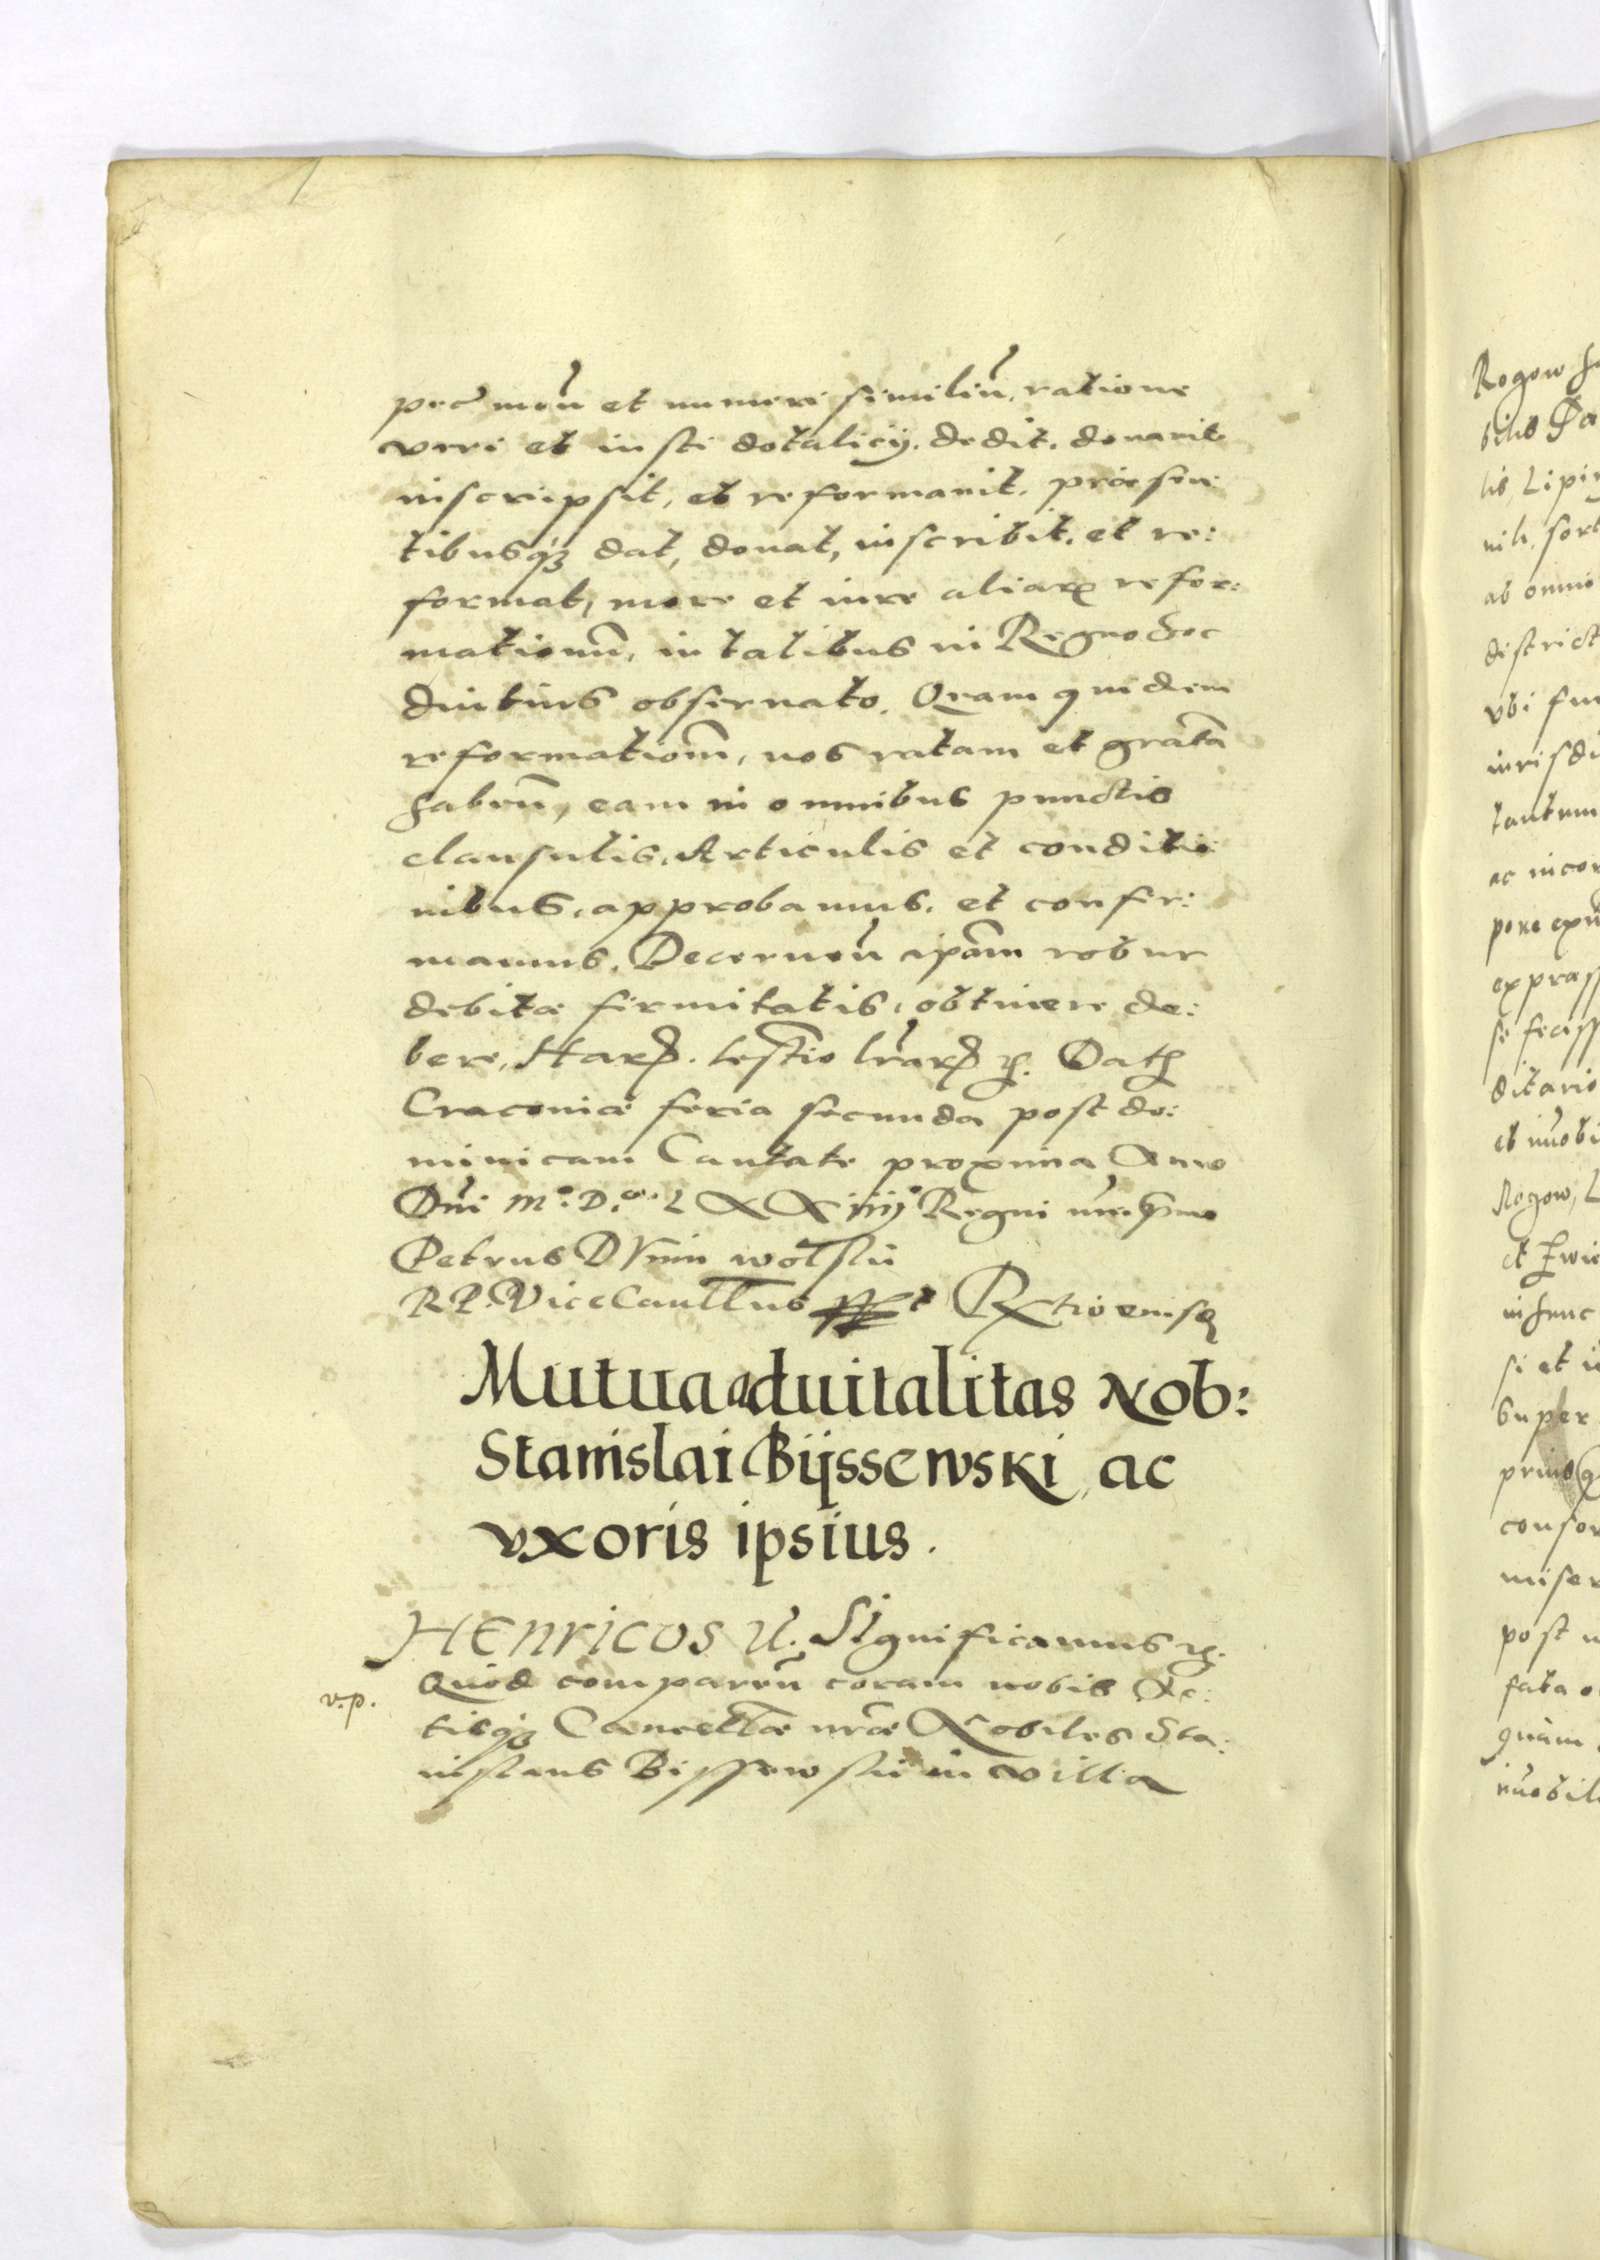 pec: monũ et numeri similiũ, ratione
veri et iusti dotalicij. dedit. donavit
inscripsit, et reformavit. præsen:
tibusq3 dat, donat, inscribit. et re:
format, more et iure aliarꝝ refor:
mationũ, in talibus in Regno hoc
diutius observato. Quam quidem
reformationẽ, nos ratam et gratã
habeñ, eam in omnibus punctis
clausulis. Articulis et conditio:
nibus. approbamus. et confir:
mamus. Decerneñ ipãm robur
debitæ firmitatis, obtinere de:
bere, Harꝝ. testio lr̃arꝝ ꝛc. Datꝫ
Cracoviæ feria secunda post do:
minicam Cantate proxima Anno
Dñi M°. D.° LXXiiij Regni nrĩ. primo
Petrus DVnin wolski
RP. ViceCancellus Rxtio eiusdꝫ
Mutua aduitalitas Nob:
Stanislai Bijssewski, ac
vxoris ipsius.
HENRICVS ꝛc. Significamus ꝛc.
v.p.
Quod compareñ coram nobis Ac:
tisq3 Cancellæ nr̃æ Nobiles Sta:
nislaus Bissewski in villa
Rogow
Lipin
sort
ab omni
district
vbi fu
iurisdi
tantum
ac incor
pore
se feciss
ditario
Rogow, L
si et
super
confor
miser
post
fata
quàm